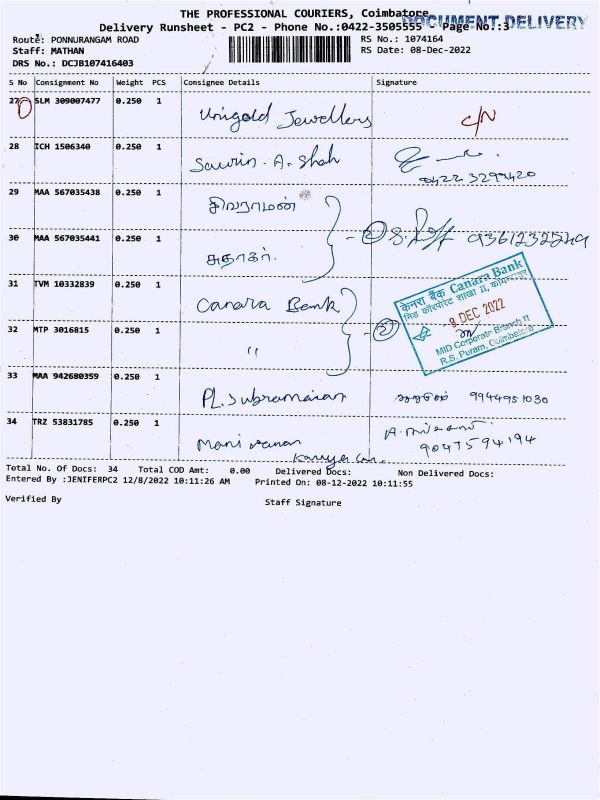 THE PROFESSIONAL COURIERS, Coimbatore
DOCUMENT DELIVERY
Delivery Runsheet - PC2 - Phone No.:0422-3505555 Page No.:3
Route: PONNURANGAM ROAD
RS No.: 1074164
Staff: MATHAN
RS Date: 08-Dec-2022
DRS No.: DCJB107416403
S No Consignment No Weight PCS Consignee Details Signature
27 SLM 309007477 0.250 1 Unigold Jewellers C/N
28 ICH 1506340 0.250 1 Saurin. A. Shah
0422 3299420
29 MAA 567035438 0.250 1 சிவராமன்
30 MAA 567035441 0.250 1 சுதாகர். 2 9361232249
31 TVM 10332839 0.250 1 Canara Bank
32 MTP 3016815 0.250 1 " 2
केनरा बैंक Canara Bank
मिड कॉरपोरेट शाखा II, कोयम्बतूर
-8 DEC 2022
MID Corporate Branch II
R.S. Puram, Coimbatore
33 MAA 942680359 0.250 1 PL. Subramanian 9944951030
34 TRZ 53831785 0.250 1 Mani 9047594194
Total No. Of Docs: 34 Total COD Amt: 0.00 Delivered Docs: Non Delivered Docs:
Entered By :JENIFERPC2 12/8/2022 10:11:26 AM Printed On: 08-12-2022 10:11:55
Verified By Staff Signature